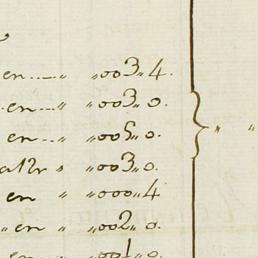 en..... „ „003„4.
en.... „ „003„0.
en... „ „005„0.
„ „003„0.
en „ „000„4
„en „ „002„0.
en „ „001„0.